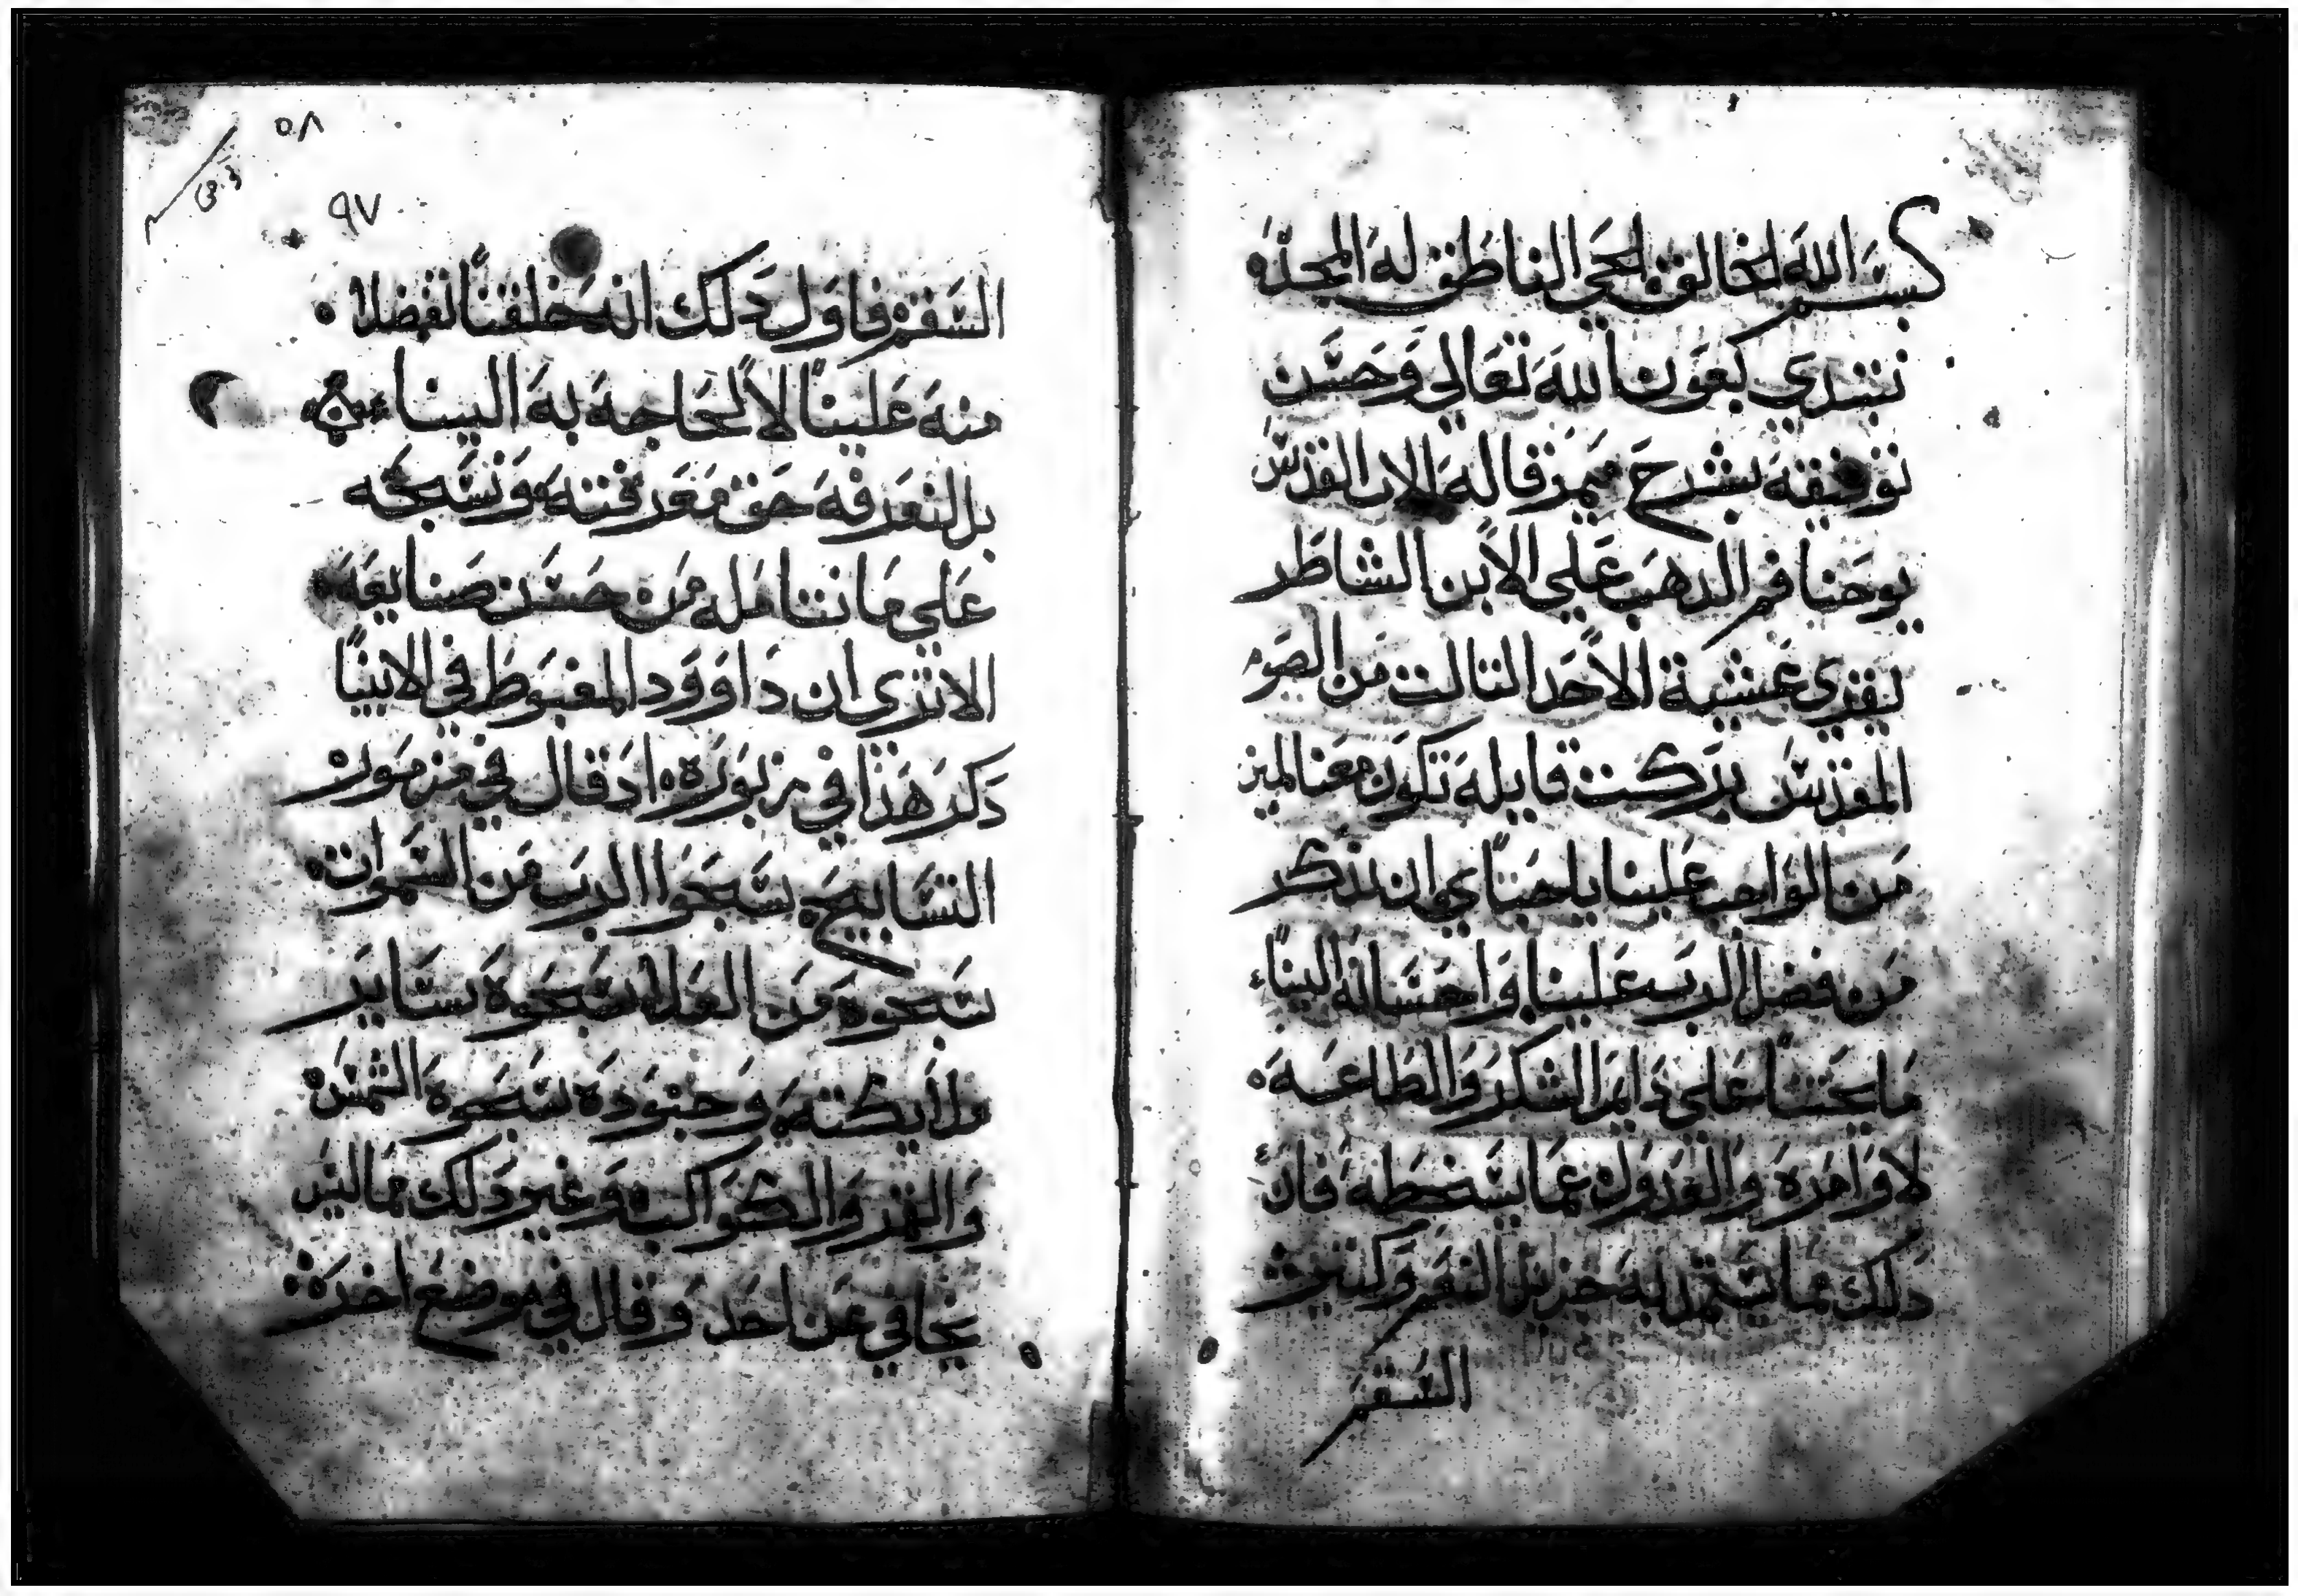 بسم الله الخالق الحي الناطق له المجد
نبتدي بعون الله تعالي وحسن
توفيقه بشرح ميمر قاله الاب القديس
يوحنا فم الدهب علي الابن الشاطر
يقري عشية الاحد التالت من الصوم
المقدس بركت قايله تكون معنا امين
من الواجب علينا يا احباي ان نذكر
من فضل الرب علينا واحسانه الينا
ما يحتنا علي دايم الشكر والطاعه
لاوامره والعدول عما يسخطه فان
دلك مما نستمد به جزيل النعم وكتير
السفر
٥٨
٩٧
السفر فاول دلك انه خلقنا تفضلا
منه علينا لا لحاجه به الينا
بل لنعرفه حق معرفته ونسبحه
علي ما نتامله من حسن صنايعه
الا تري ان داوود المغبوط في الانبيا
دكر هذا في مزبوره اد قال في مزمور
التسابيح سبحوا الرب من السموات
سبحوه من العلا سبحوه ساير
ملايكته وجنوده سبحوه الشمس
والقمر والكواكب وغير دلك مما ليس
بخافي عن احد وقال في موضع اخر